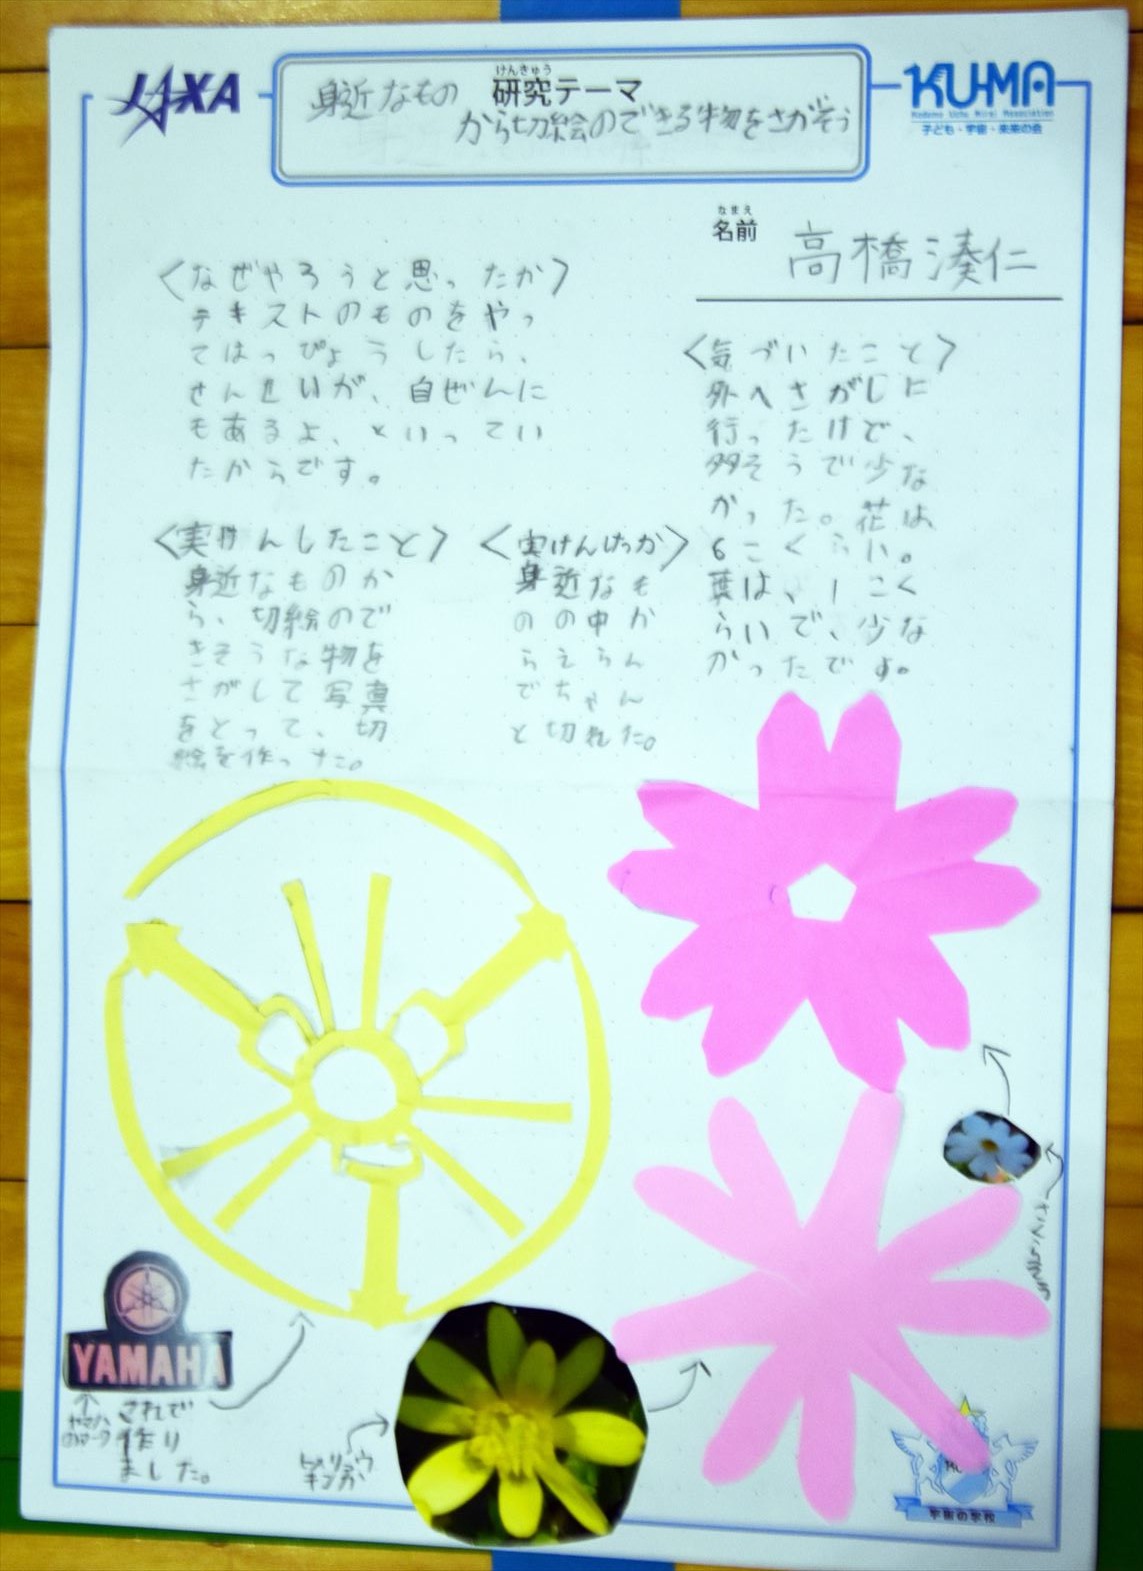 JAXA
身近なもの
けんきゅう
研究テーマ
から切絵のできる物をさがそう
KU-MA
Kodomo Uchu Mirai Association
子ども・宇宙・未来の会
なまえ
名前
高橋湊仁
〈なぜやろうと思ったか〉
テキストのものをやっ
てはっぴょうしたら、
せんせいが、自ぜんに
もあるよ、といってい
たからです。
〈実けんしたこと〉
身近なものか
ら、切絵ので
きそうな物を
さがして写真
をとって、切
絵を作った。
〈実けんけっか〉
身近なも
のの中か
らえらん
でちゃん
と切れた。
〈気づいたこと〉
外へさがしに
行ったけど、
多そうで少な
かった。花は
6こくらい。
葉は、1こく
らいで、少な
かったです。
YAMAHA
ヤマハ
のマーク
これで
作り
ました。
ヒメリュウ
キンカ
宇宙の学校